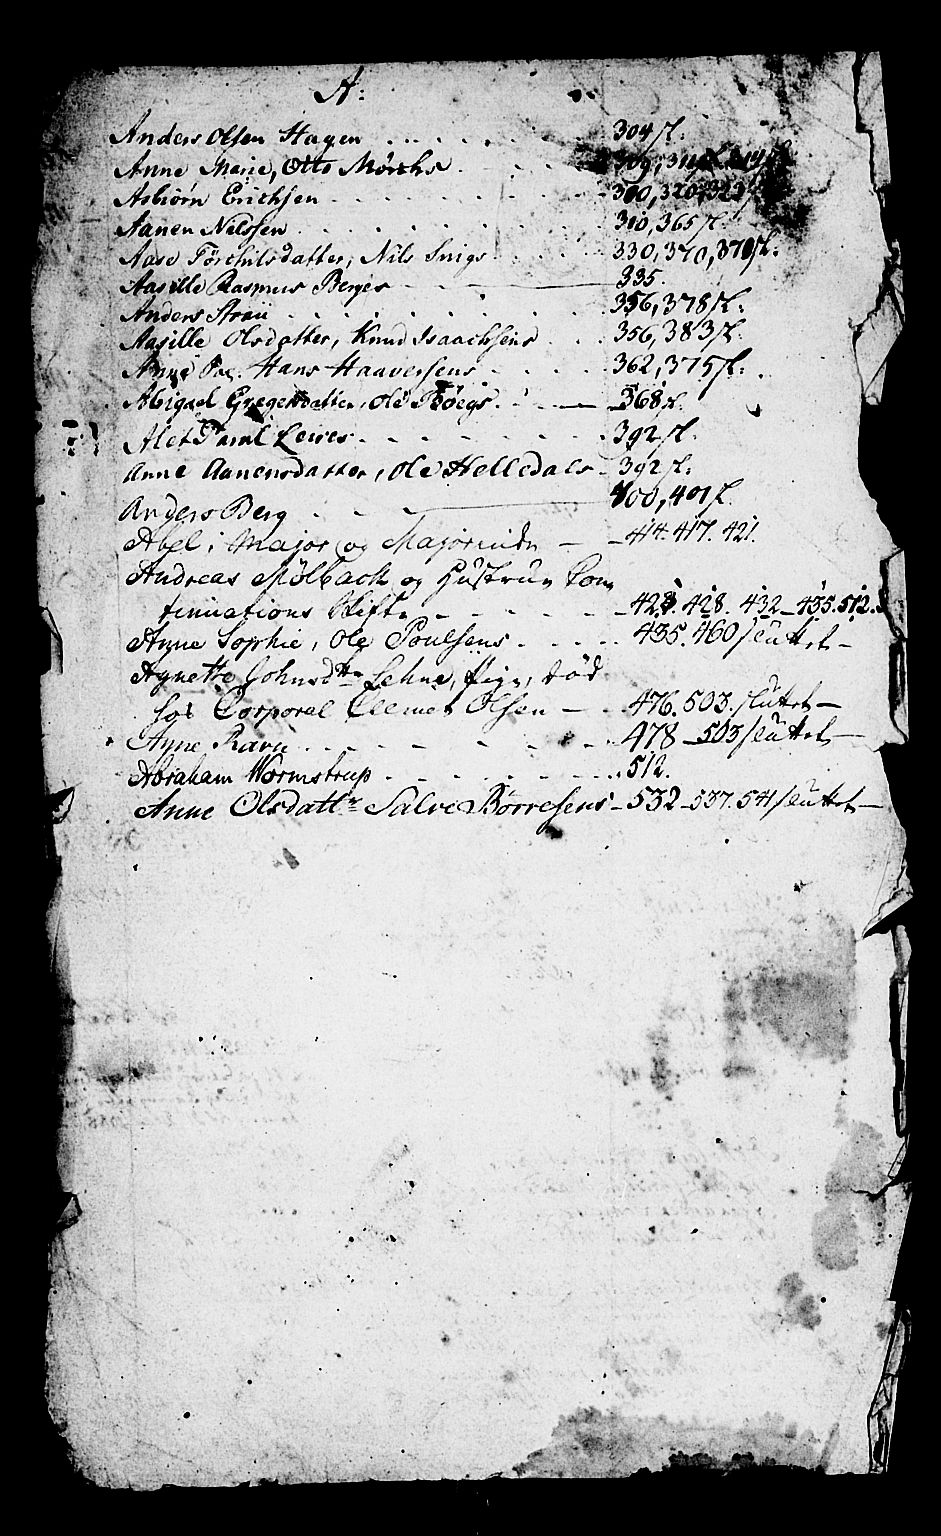 A:
Anders Olsen Hagen . . . . . . . 304 sl:
Anne Marie, Otto Mörchs . . . . 309, 311
Asbiørn Erichsen . . . . . . . . 320, 322
Aanen Nielssen . . . . . . . . 310, 365 sl.
Aase Törchilsdatter, Nils Snigs . . . . 330, 370, 379 sl:
Aasille Rasmus Berges . . . 335.
Anders Straü . . . . . . . . 356, 378 sl:
Aasille Olsdatter, Knud Isaachsens . . . 356, 383 sl.
Anne Hans Haaversens . . . . 362, 375 sl:
Abigael Ole . . 368 sl.
Alet . . . . . . . 392 sl.
Anne Aanensdatter, Ole Helledals - 392 sl:
Anders Berg . . . 400, 401 sl.
Abel, Major og Majorinde — 414. 417. 421.
Andreas Mölback og Hustrue Con
tinuations Skifte . . . . . . 428. 432. 435. 512.
Anne Sophie, Ole Poulsens . . . . 435. 460 sluttet —
Agnette Johnsdtr Lehne, Pige, död
hos Corporal Clemet Olsen — . 476. 503. sluttet —
Anne Ravn . . . . . . . 478 — 503 sluttet —
Abraham Wormstrup . . . . . . . 512.
Anne Olsdattr Salve Börresens — 532 — 537. 541 sluttet —